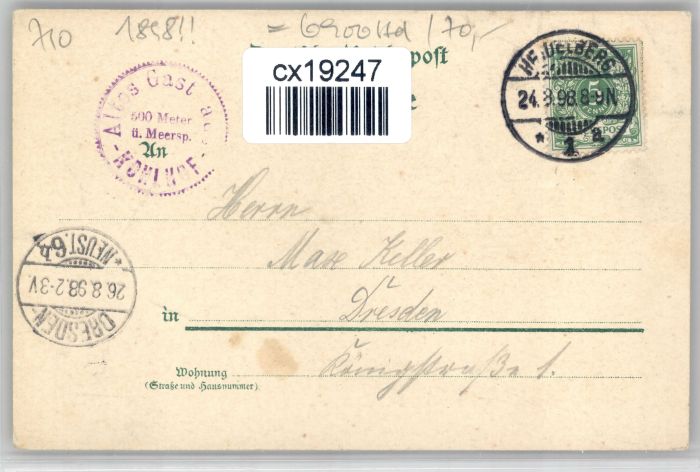 710 1898!! = 6900 Hd / 70,-
post
cx19247
HEIDELBERG
24. 8. 98. 8-9N
* 1 a
5
Altes Gast
500 Meter
ü. Meersp.
KOHLHOF
An
Herrn
Max Keller
in Dresden
DRESDEN
26.8.98.2-3V.
*NEUST.6*
Wohnung Königstraße 1.
(Straße und Hausnummer)